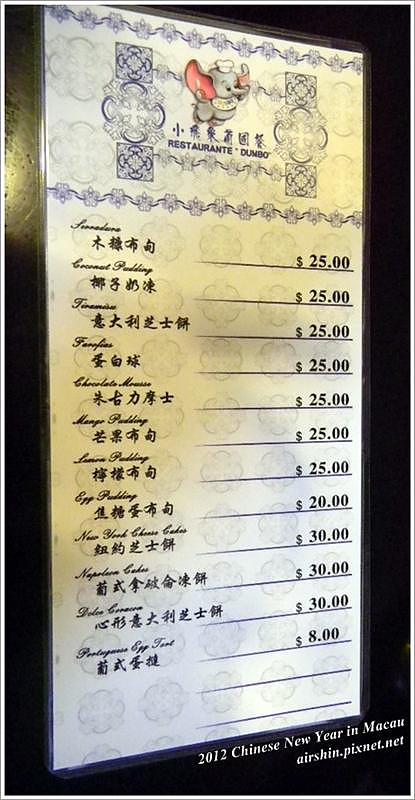 小飛象葡國餐
RESTAURANTE "DUMBO"
Serradura
木糠布甸 $ 25.00
Coconut Pudding
椰子奶凍 $ 25.00
Tiramisu
意大利芝士餅 $ 25.00
Farofias
蛋白球 $ 25.00
Chocolate Mousse
朱古力摩士 $ 25.00
Mango Pudding
芒果布甸 $ 25.00
Lemon Pudding
檸檬布甸 $ 25.00
Egg Pudding
焦糖蛋布甸 $ 20.00
New York Cheese Cakes
紐約芝士餅 $ 30.00
Napoleon Cakes
葡式拿破侖凍餅 $ 30.00
Dolce Coracon
心形意大利芝士餅 $ 30.00
Portuguese Egg Tart
葡式蛋撻 $ 8.00
2012 Chinese New Year in Macau
airshin.pixnet.net